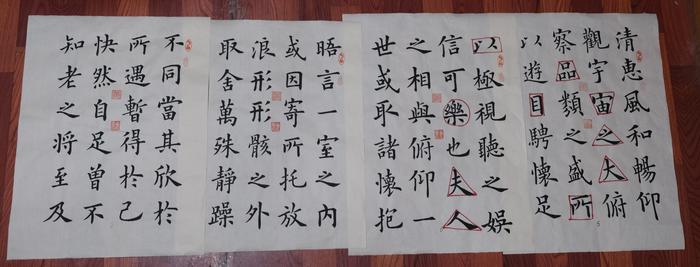 清惠風和暢仰
觀宇宙之大俯
察品類之盛所
以遊目騁懷足
以極視聽之娛
信可樂也夫人
之相與俯仰一
世或取諸懷抱
晤言一室之內
或因寄所托放
浪形形骸之外
取舍萬殊靜躁
不同當其欣於
所遇暫得於己
快然自足曾不
知老之將至及